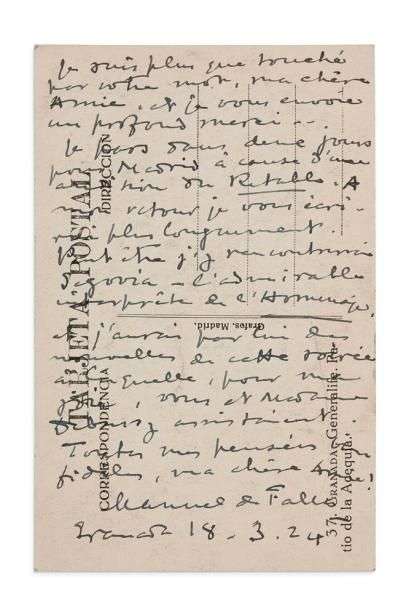 Je suis plus que touché
par votre mot, ma chère
Amie, et je vous envoie
un profond merci --.
Je pars dans deux jours
pour Madrid à cause d'une
audition du Retablo. A
mon retour je vous écri-
rai plus longuement.
Peut-être j'y rencontrerai
Segovia - l'admirable
interprète de l'Homenaje,
et j'aurai par lui des
nouvelles de cette soirée
à laquelle, pour ma
joie, vous et Madame
Debussy assistaient.
Toutes mes pensées
fidèles, ma chère Amie!
Manuel de Falla
Granada 18 - 3. 24
TARJETA POSTAL
CORRESPONDENCIA
DIRECCIÓN
Grafos. Madrid.
37. GRANADA. Generalife. Pa-
tio de la Acequia.